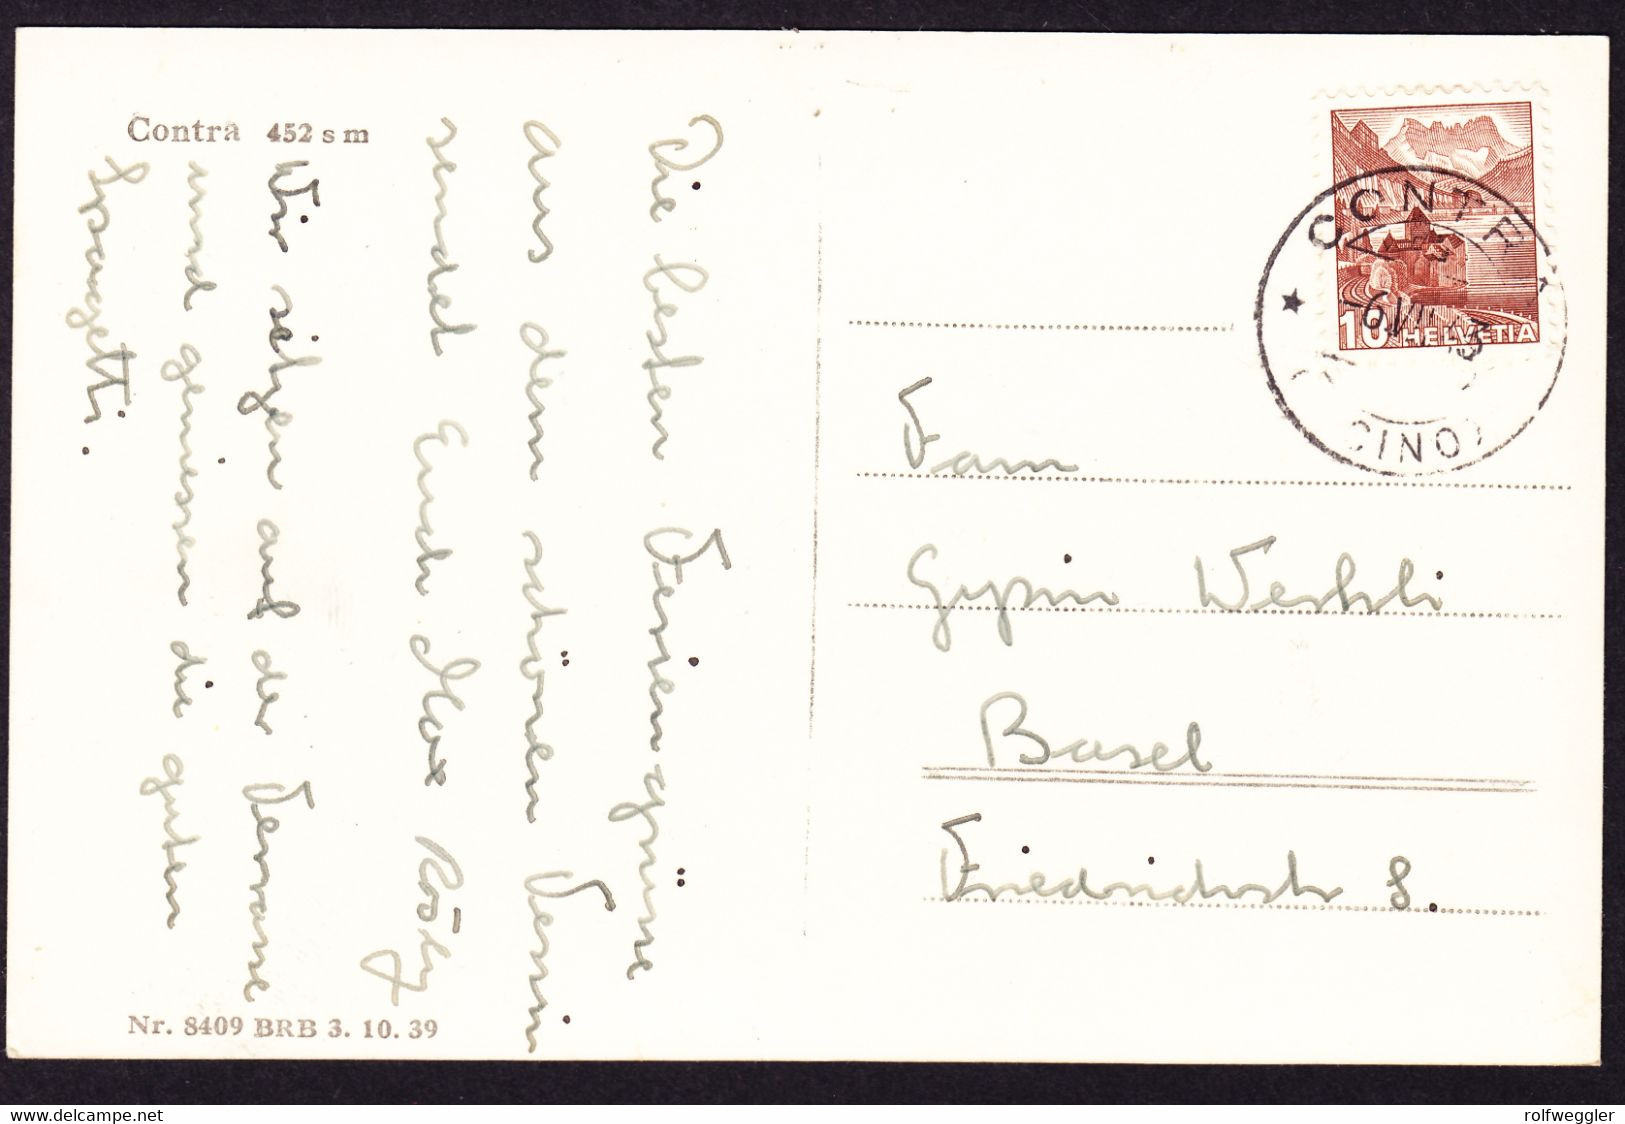 Contra 452 s m
Die besten Feriengrüsse
aus dem schönen Tessin
sendet Euch Max Rösly
Wir sitzen auf der Terrasse
und geniessen die guten
Spagetti.
Nr. 8409 BRB 3. 10. 39
CONTRA
-6.VII.43
CINO)
10 HELVETIA
Fam
Gysin Wehrli
Basel
Friedrichstr 8.
rolfweggler
delcampe.net